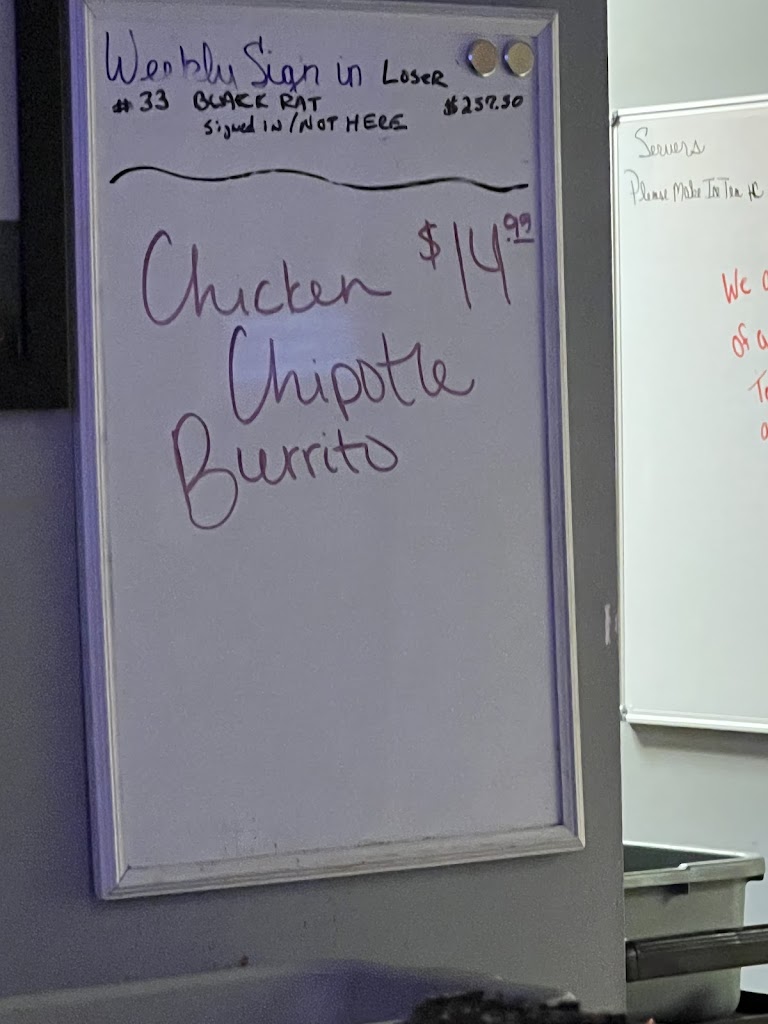 Weekly Sign in LOSER
# 33 BLACK RAT $257.50
signed IN / NOT HERE
Chicken $14.99
Chipotle
Burrito
Servers
Please Make
We
of